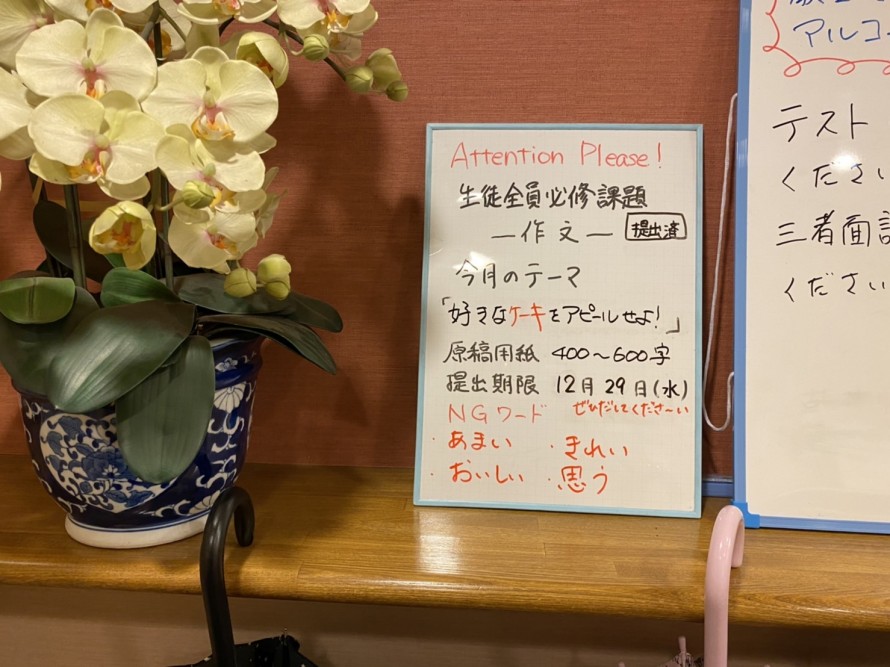 Attention Please!
生徒全員必修課題
―作文― 提出済
今月のテーマ
「好きなケーキをアピールせよ!」
原稿用紙 400〜600字
提出期限 12月29日(水)
ぜひだしてくださ〜い
NGワード
・あまい ・きれい
・おいしい ・思う
アルコ
テスト
くださ
三者面
ください